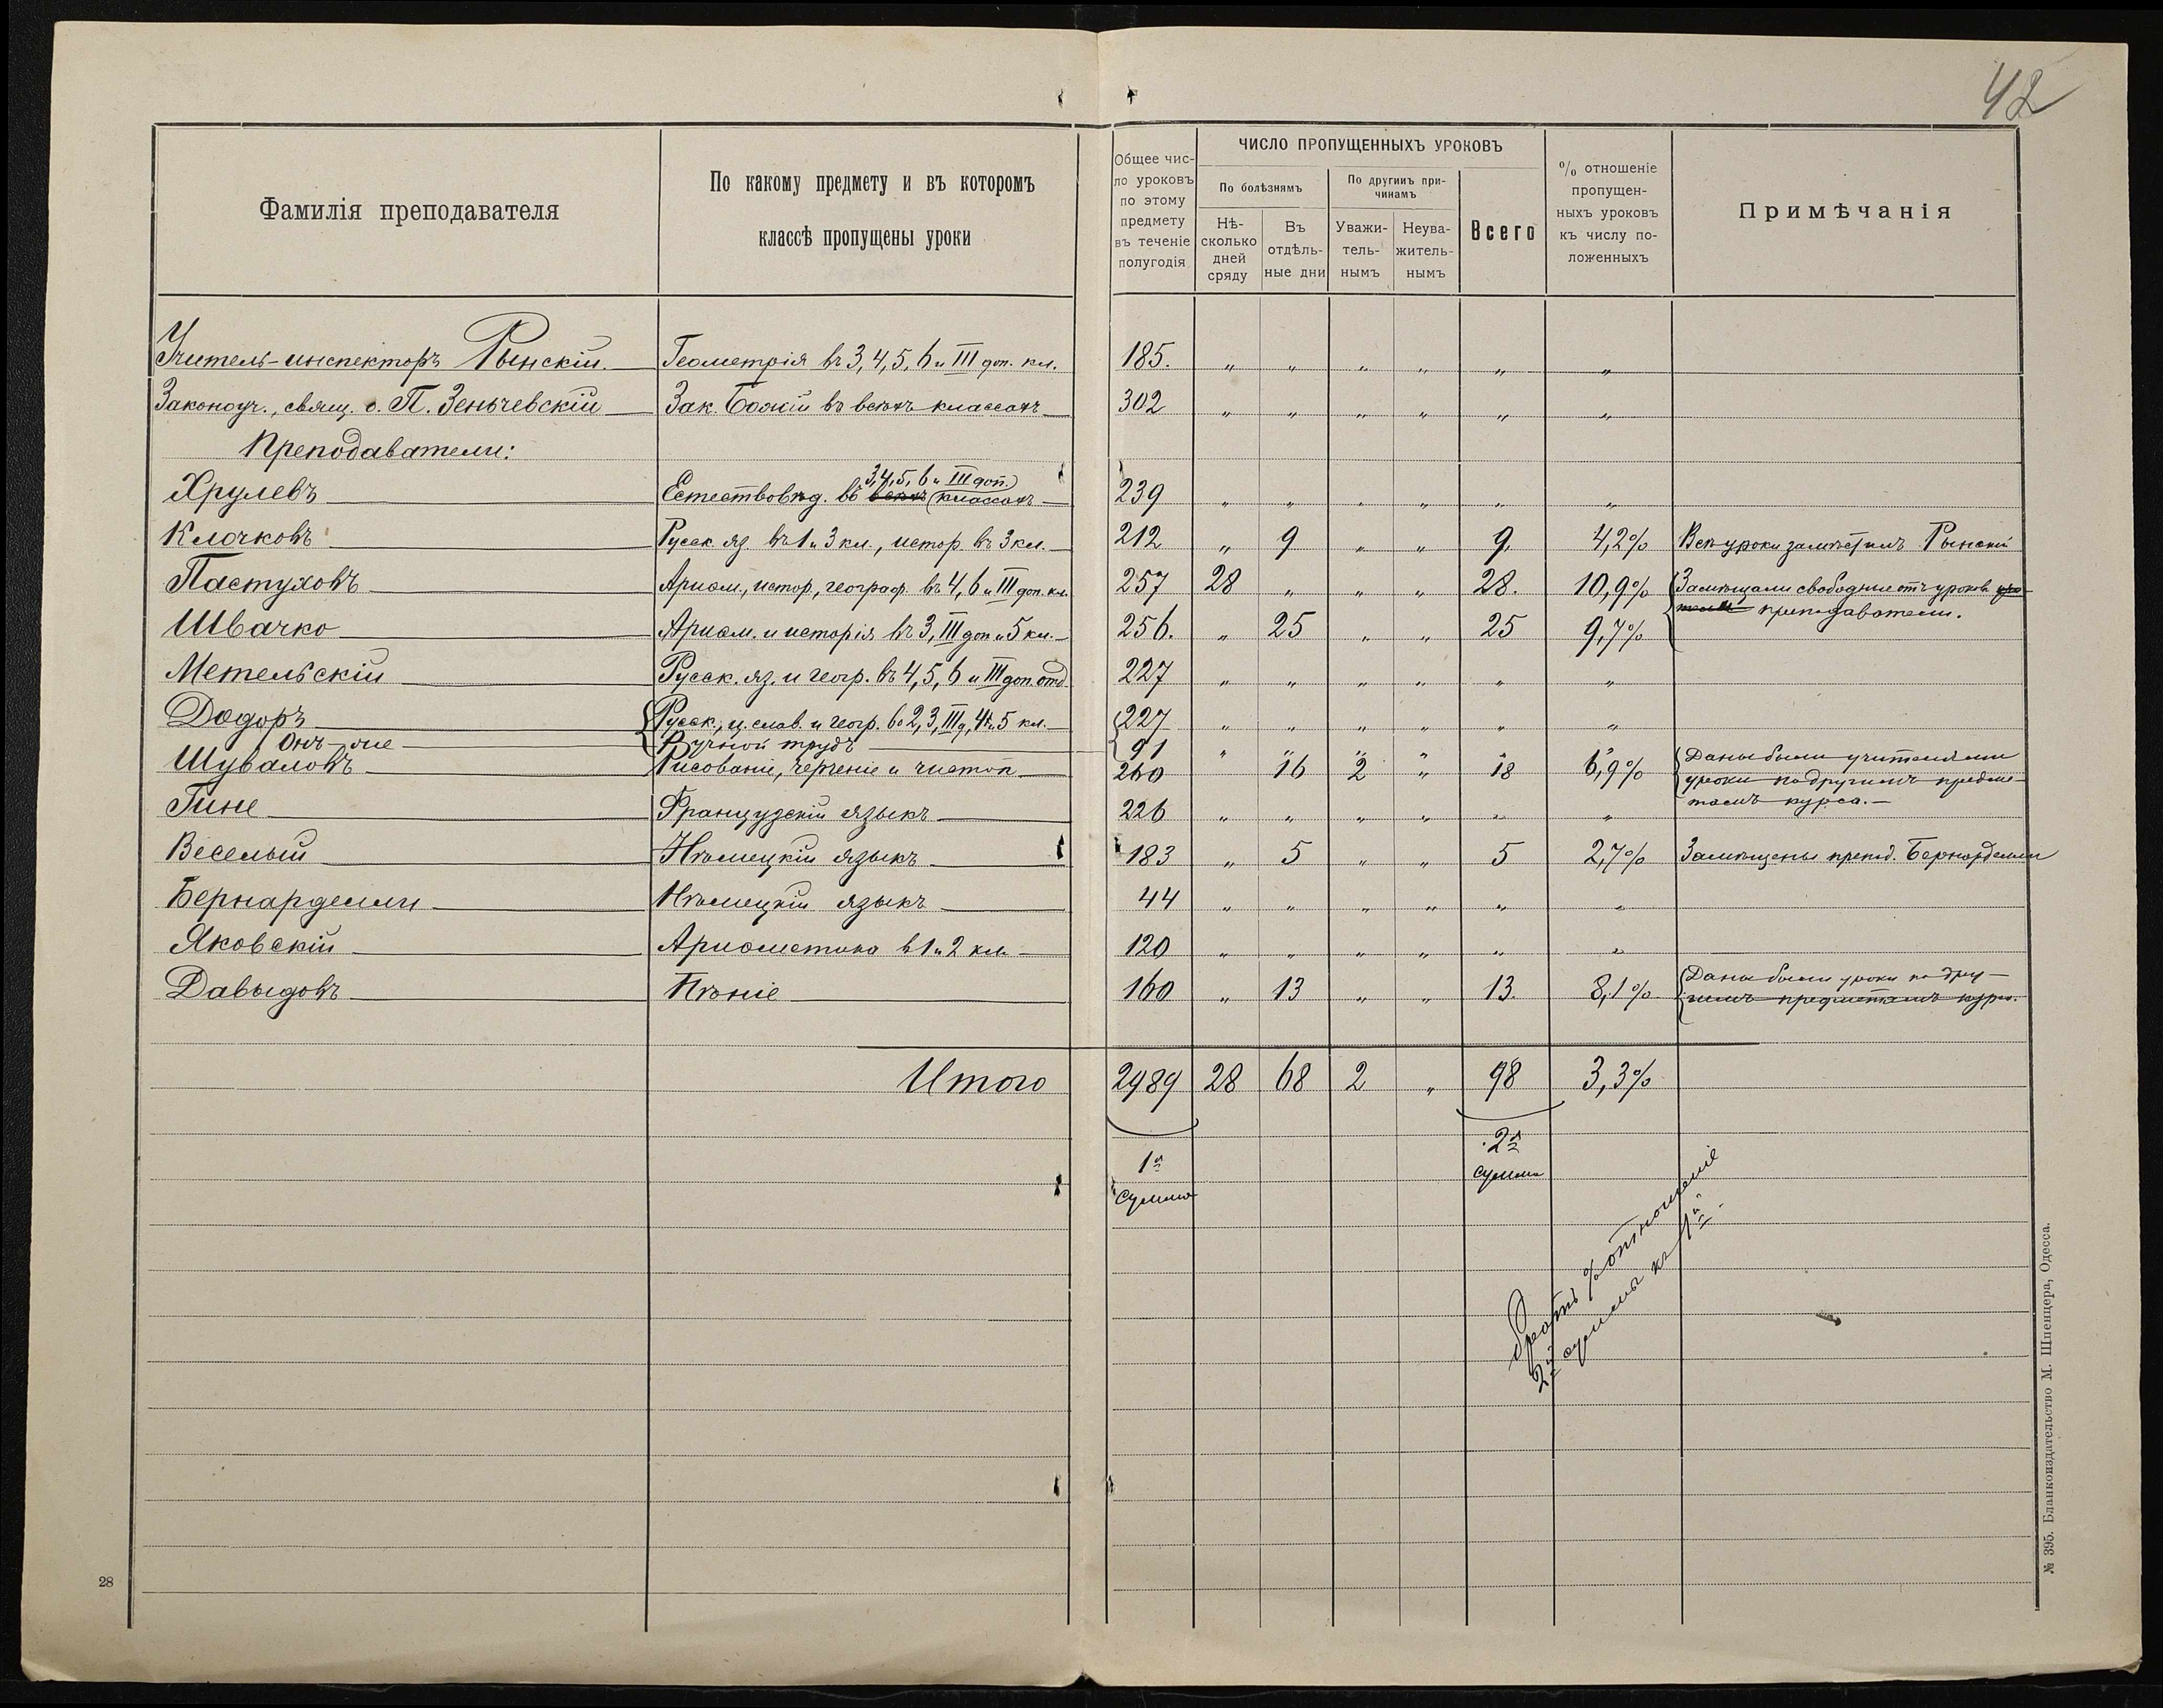 42
Фамилія преподавателя
По какому предмету и въ которомъ
классѣ пропущены уроки
Общее чис-
ло уроковъ
по этому
предмету
въ теченіе
полугодія
ЧИСЛО ПРОПУЩЕННЫХЪ УРОКОВЪ
По болѣзнямъ
По другимъ при-
чинамъ
Нѣ-
сколько
дней
сряду
Въ
отдѣль-
ные дни
Уважи-
тель-
нымъ
Неува-
житель-
нымъ
Всего
% отношеніе
пропущен-
ныхъ уроковъ
къ числу по-
ложенныхъ
Примѣчанія
Учитель-инспекторъ Рынскій. Геометрія въ 3, 4, 5, 6 и III доп. кл. 185. „ „ „ „ „ „
Законоуч., свящ. о. П. Зеньчевскій Зак. Божій въ всѣхъ классахъ 302 „ „ „ „ „ „
Преподаватели:
3,4,5, 6 и III доп.
Хрулевъ Естествовѣд. въ всѣхъ классахъ 239 „ „ „ „ „ „
Клочковъ Русск. яз. въ 1 и 3 кл., истор. въ 3 кл. 212 „ 9 „ „ 9. 4,2% Всѣ уроки замѣстилъ Рынскій
Пастуховъ Ариѳм., истор., географ. въ 4, 6 и III доп. кл. 257 28 „ „ „ 28. 10,9% Замѣщали свободные отъ уроковъ
преподаватели.
Швачко Ариѳм. и исторія въ 3, III доп и 5 кл. 256. „ 25 „ „ 25 9,7%
Метельскій Русск. яз. и геогр. въ 4, 5, 6 и III доп. отд. 227 „ „ „ „ „ „
Додоръ Русск., ц. слав. и геогр. во 2, 3, III д, 4 и 5 кл. 227 „ „ „ „ „ „
Онъ-же Ручной трудъ 91 „ „ „ „ „ „
Шуваловъ Рисованіе, черченіе и чистоп. 260 16 2 „ 18 6,9% Даны были учителями
уроки по другимъ предме-
тамъ курса.—
Гине Французскій языкъ 226 „ „ „ „ „ „
Веселый Нѣмецкій языкъ 183 „ 5 „ „ 5 2,7% Замѣщены препод. Бернарделли
Бернарделли Нѣмецкій языкъ 44 „ „ „ „ „ „
Яковскій Ариѳметика в 1 и 2 кл. 120 „ „ „ „ „ „
Давыдовъ Пѣніе 160 „ 13 „ „ 13. 8,1% Даны были уроки по дру-
гимъ предметамъ курса.
Итого 2989 28 68 2 „ 98 3,3%
1я
сумма
2я
сумма
% отношеніе
2й суммы къ 1й.
28
№ 395. Бланкоиздательство М. Шпенцера, Одесса.